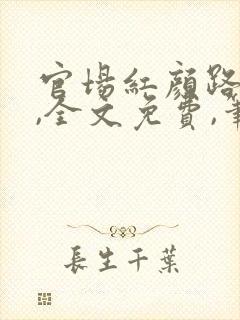 官场紅顏路
,全文免費,
長生千葉